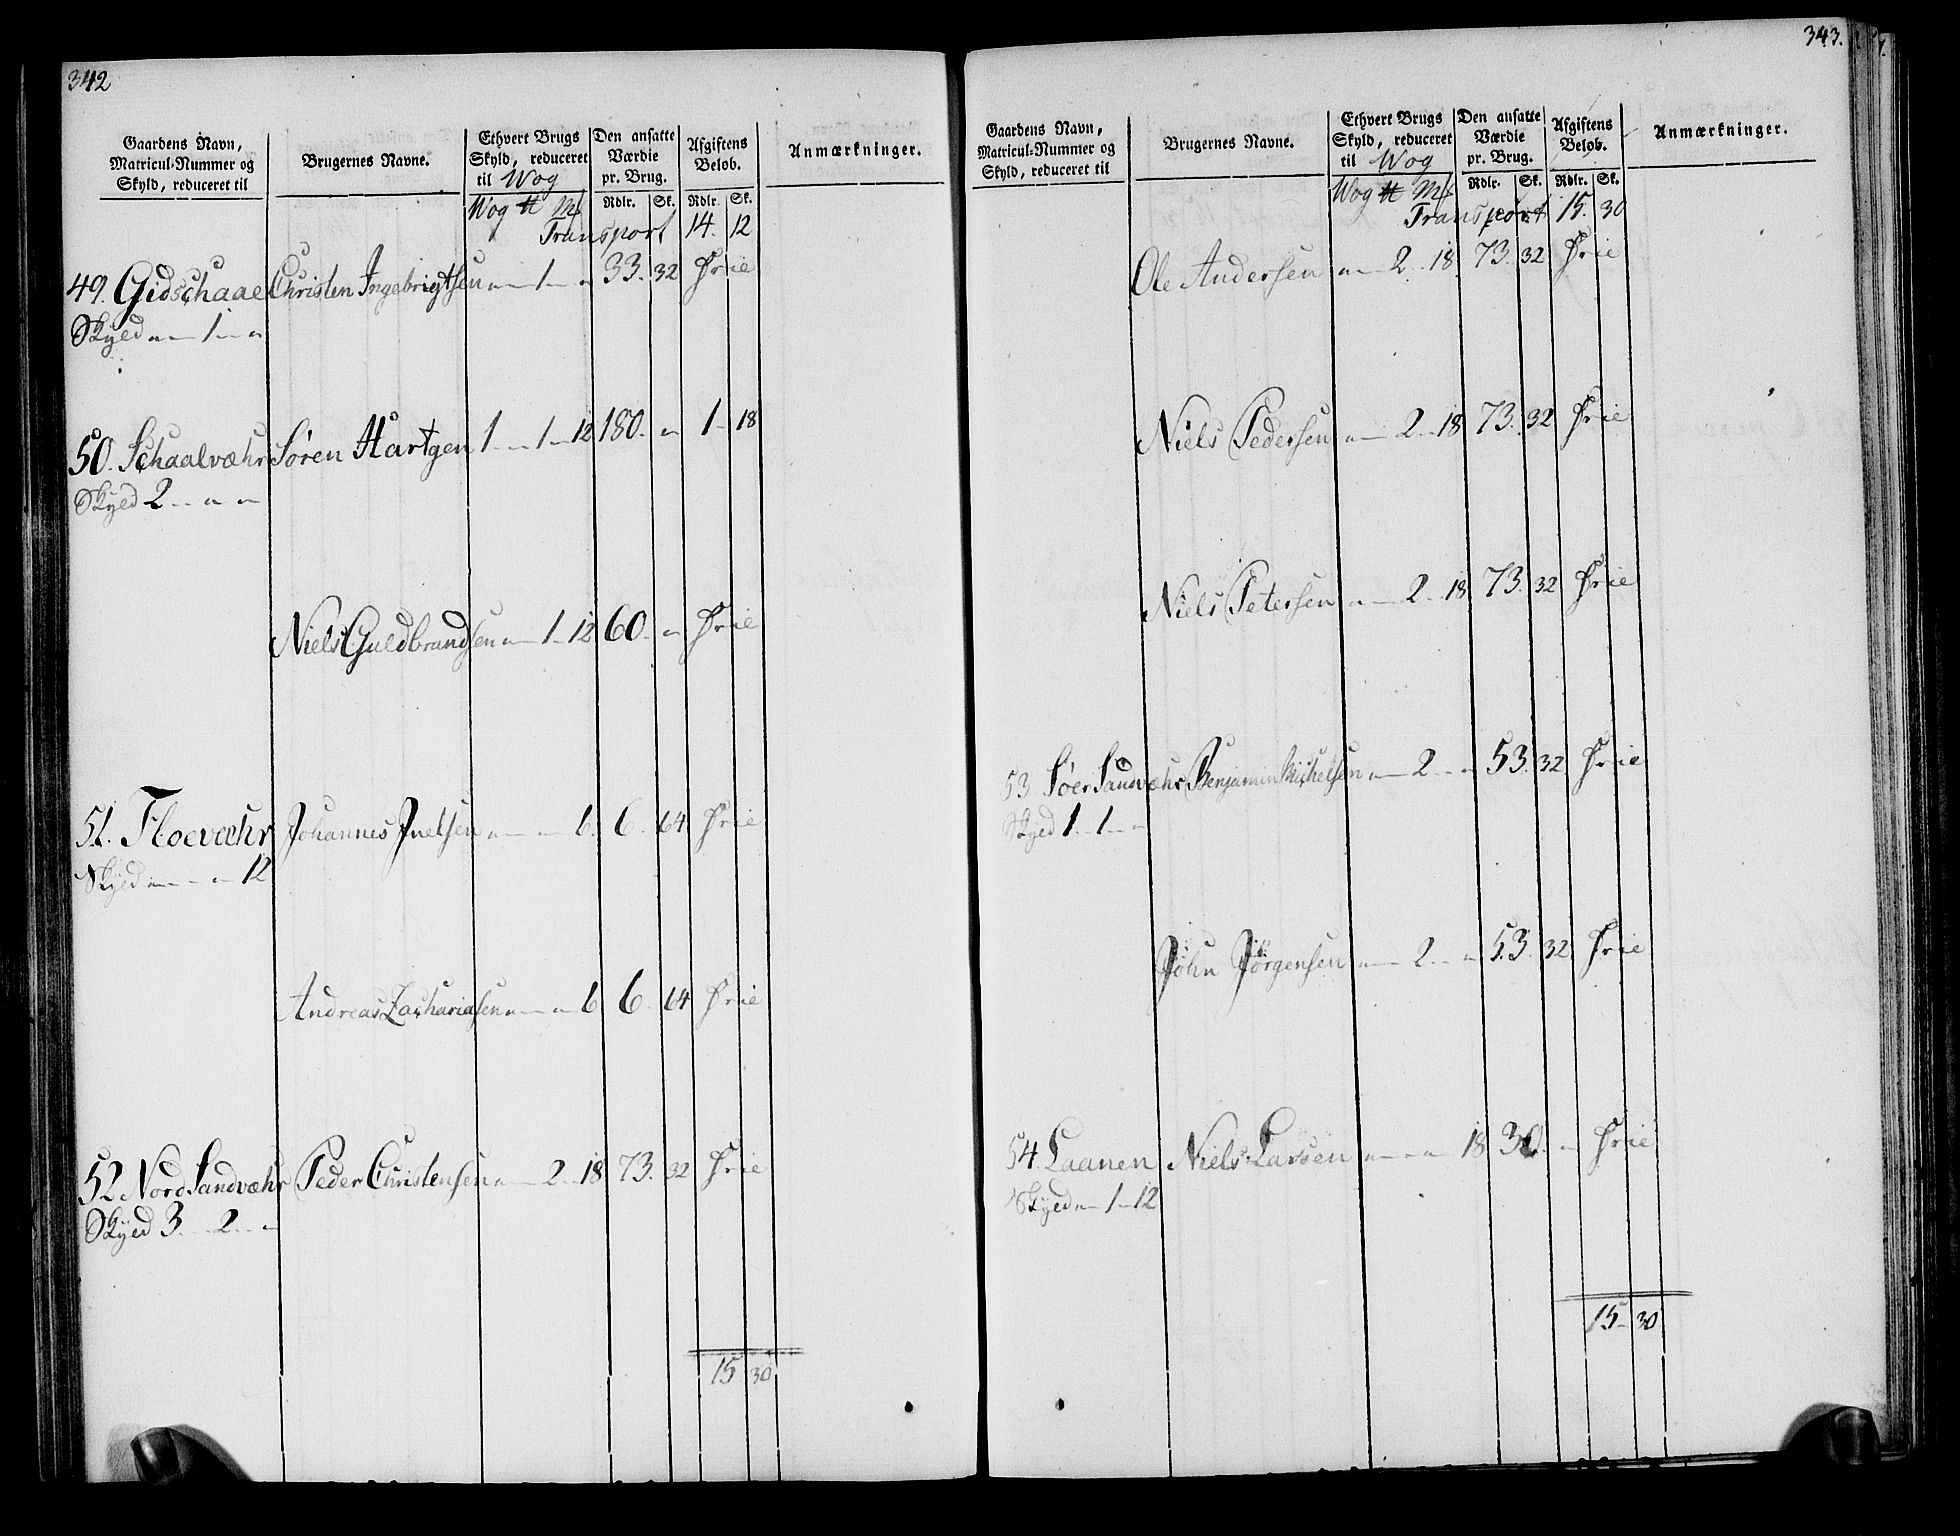 342
Gaardens Navn, Matricul-Nummer og Skyld, reduceret til
Brugernes Navne.
Ethvert Brugs Skyld, reduceret til Wog
Den ansatte Værdie pr. Brug.
Afgiftens Beløb.
Anmærkninger.
Wog ℔ Mk Rdlr. Sk. Rdlr. Sk.
Transport 14. 12
49. Gidschaae Christen Ingebrigtsen „ — 1 — „ 33. 32 Frie
Skyld „ — 1 — „
50. Schaalvæhr Sören Hartgen 1 — 1 — 12 180. „ 1 — 18
Skyld 2 — „ — „
Niels Guldbrandsen „ — 1 — 12 60. „ Frie
51. Floevæhr Johannes Juelsen „ — „ — 6. 6. 64 Frie
Skyld „ — „ — 12
Andreas Zachariasen „ — „ — 6 6. 64 Frie
52 Nord Sandvæhr Peder Christensen „ — 2 — 18 73. 32 Frie
Skyld 3. — 2 — „
15 30
343.
Gaardens Navn, Matricul-Nummer og Skyld, reduceret til
Brugernes Navne.
Ethvert Brugs Skyld, reduceret til Wog
Den ansatte Værdie pr. Brug.
Afgiftens Beløb.
Anmærkninger.
Wog ℔ Mk Rdlr. Sk. Rdlr. Sk.
Transport 15. 30
Ole Andersen „ — 2 — 18. 73. 32 Frie
Niels Pedersen „ — 2 — 18 73. 32 Frie
Niels Petersen „ — 2 — 18 73. 32 Frie
53 Söer Sandvæhr Benjamin Michelsen „ — 2 — „ 53. 32 Frie
Skyld 1 — 1 — „
John Jörgensen „ — 2 — „ 53. 32 Frie
54. Laanen Niels Larsen „ — „ — 18 30. „ Frie
Skyld „ — 1 — 12
15 — 30